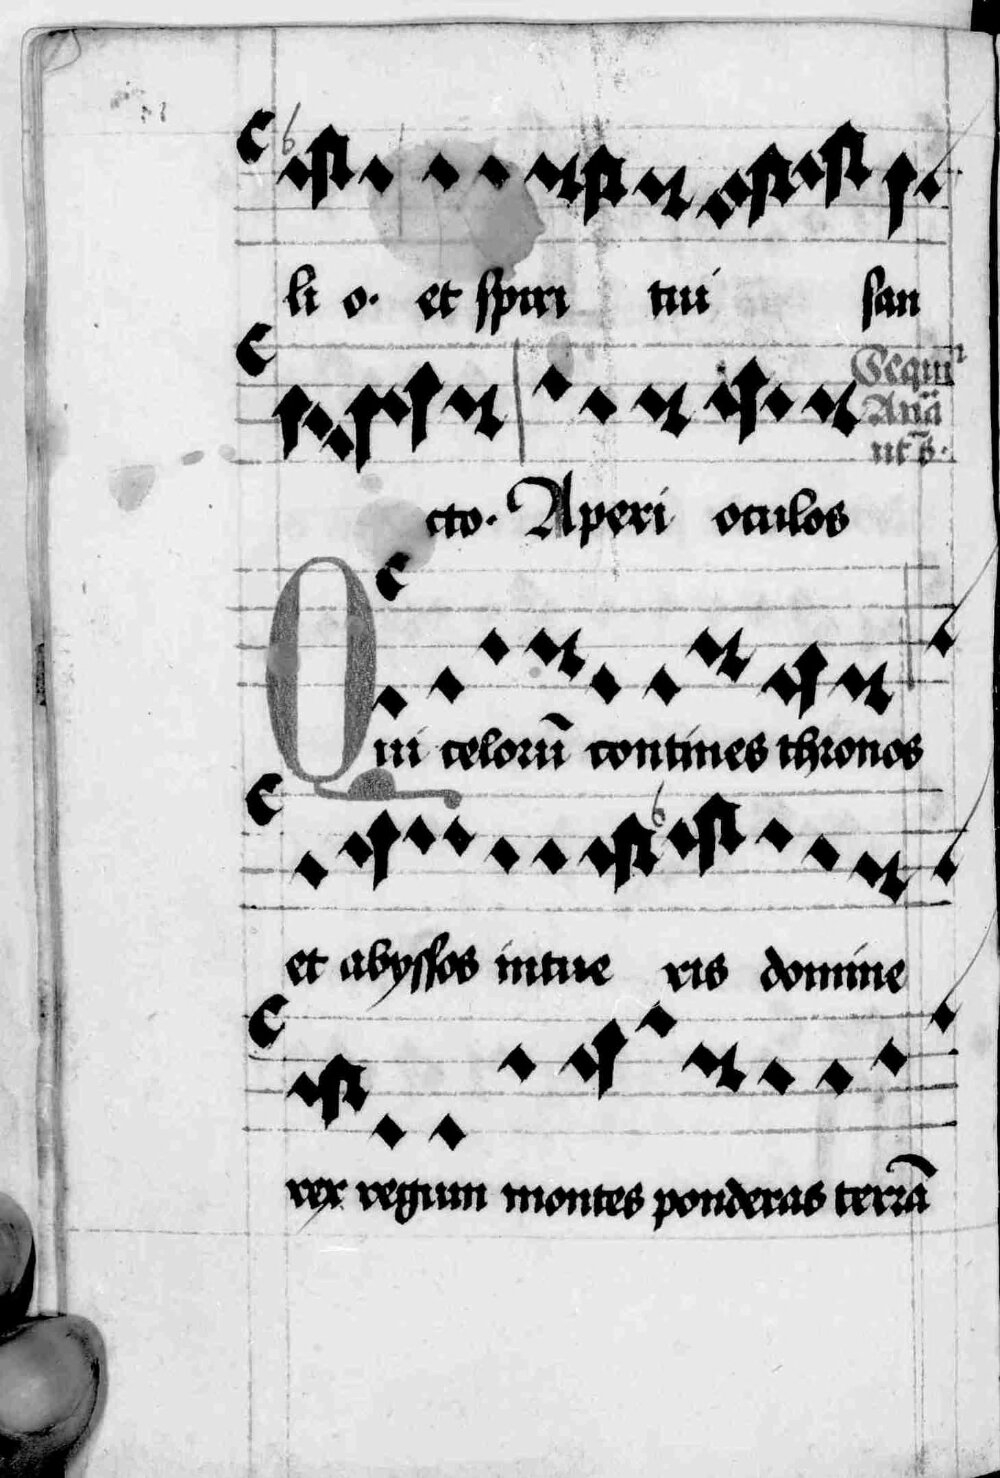 li o. et spiri tui san
Sequit
Aña
ut s.
cto. Aperi oculos
Qui celorū contines thronos
et abyssos intue ris domine
rex regum montes ponderas terrā